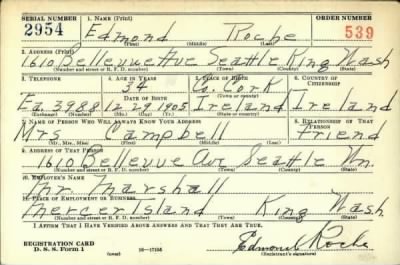 SERIAL NUMBER 1. NAME (Print) ORDER NUMBER
2954 Edmond Roche 539
(First) (Middle) (Last)
2. ADDRESS (Print)
1610 Bellevue Ave Seattle King Wash
(Number and street or R. F. D. number) (Town) (County) (State)
3. TELEPHONE 4. AGE IN YEARS 5. PLACE OF BIRTH 6. COUNTRY OF CITIZENSHIP
34 Co. Cork
DATE OF BIRTH (Town or county)
Ea. 3988 12-29-1905 Ireland Ireland
7. NAME OF PERSON WHO WILL ALWAYS KNOW YOUR ADDRESS 8. RELATIONSHIP OF THAT PERSON
Mrs Campbell Friend
(Mr., Mrs., Miss) (First) (Middle) (Last)
9. ADDRESS OF THAT PERSON
1610 Bellevue Ave Seattle Wn.
(Number and street or R. F. D. number) (Town) (County) (State)
10. EMPLOYER'S NAME
Mr. Marshall
11. PLACE OF EMPLOYMENT OR BUSINESS
Mercer Island King Wash
(Number and street or R. F. D. number) (Town) (County) (State)
I AFFIRM THAT I HAVE VERIFIED ABOVE ANSWERS AND THAT THEY ARE TRUE.
REGISTRATION CARD
D. S. S. Form 1 (over) 16—17105 Edmond Roche
(Registrant's signature)